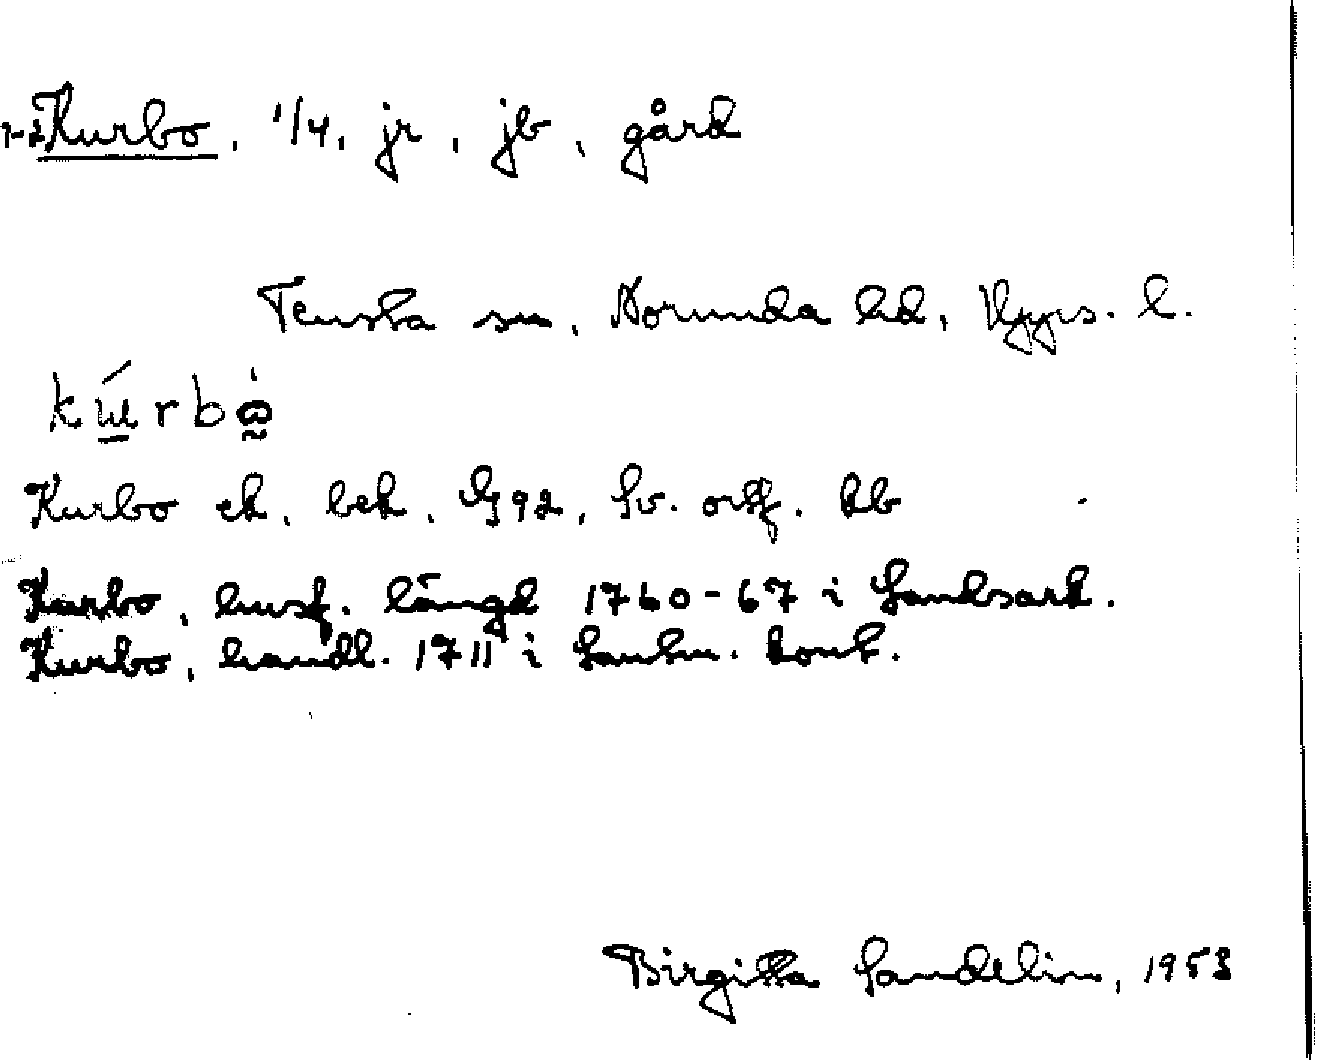 Kurbo, 1/4, jr, jb, gård
Tensta sn, Norunda hd, Upps. l.
Kurbo ek. bek. G92, Sv. ortf. kb
Kurbo, husf. längd 1760-67 i Landsark.
Kurbo, handl. 1711 i Lantm. kont.
Birgitta Sandelin, 1953